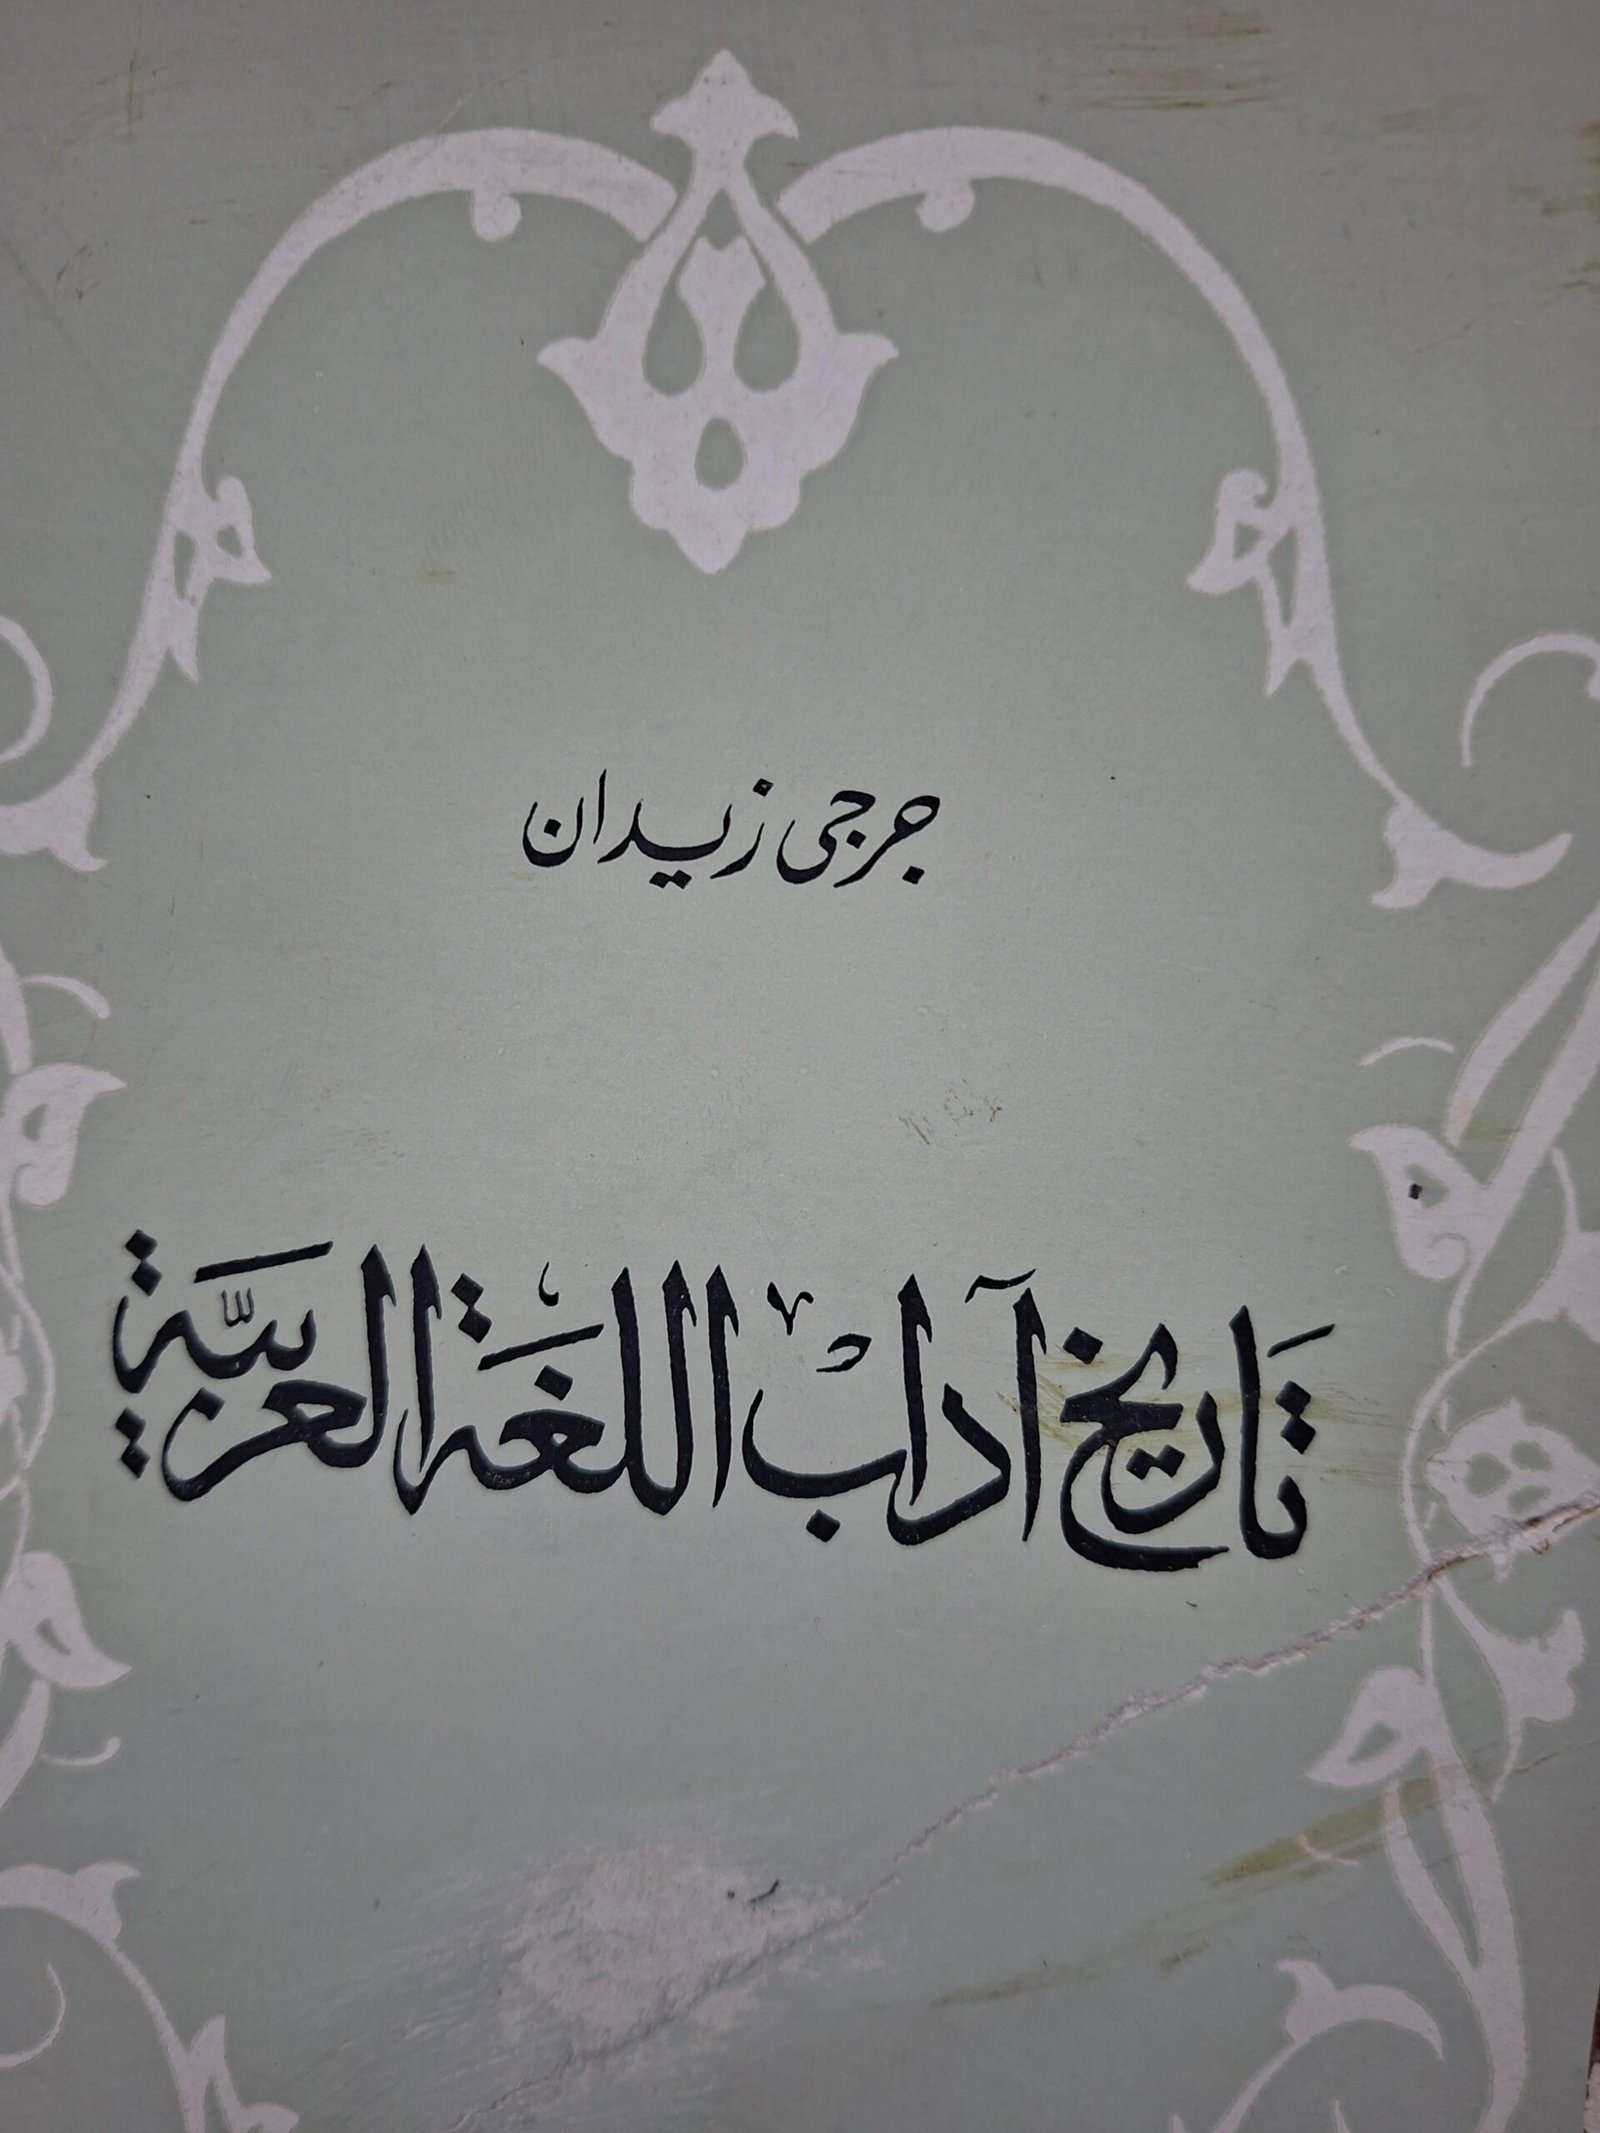 جرجى زيدان
تاريخ آداب اللغة العربية